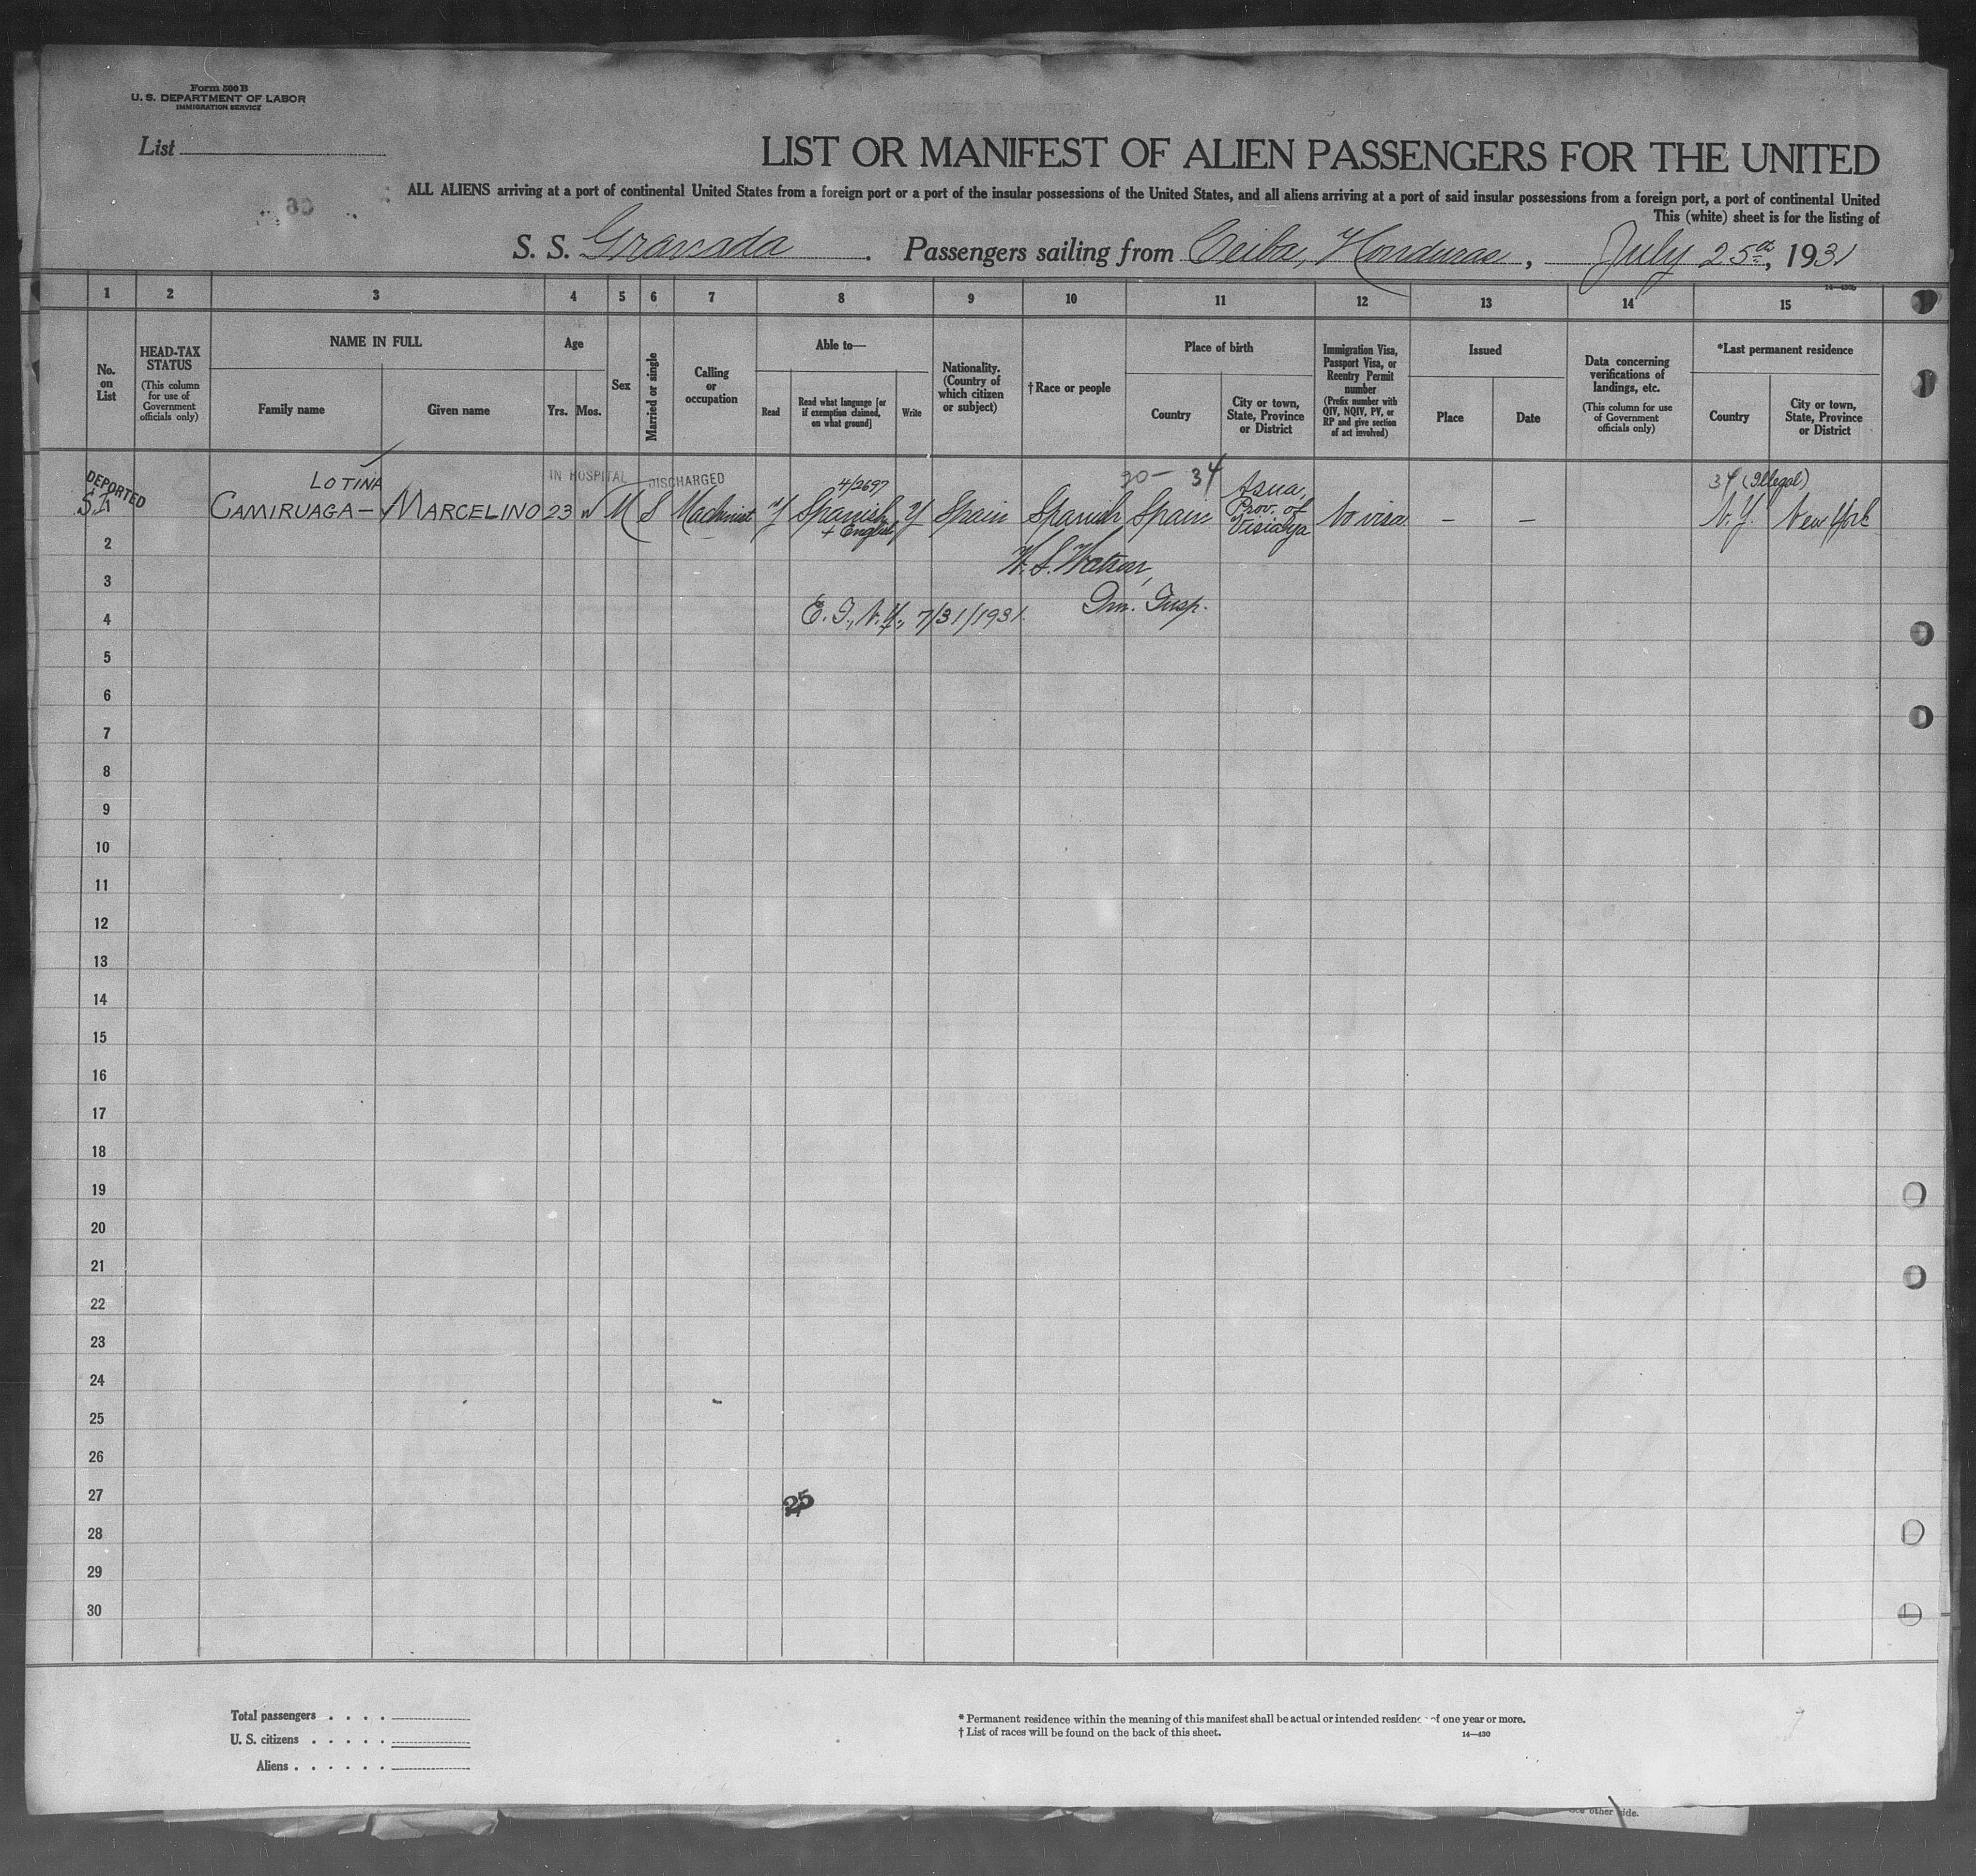 Form 500 B
U. S. DEPARTMENT OF LABOR
IMMIGRATION SERVICE
List
LIST OR MANIFEST OF ALIEN PASSENGERS FOR THE UNITED
ALL ALIENS arriving at a port of continental United States from a foreign port or a port of the insular possessions of the United States, and all aliens arriving at a port of said insular possessions from a foreign port, a port of continental United
This (white) sheet is for the listing of
S. S. Granada . Passengers sailing from Ceiba, Honduras, July 25th, 1931
1 2 3 4 5 6 7 8 9 10 11 12 13 14 15
No. on List
HEAD-TAX STATUS
(This column for use of Government officials only)
NAME IN FULL
Family name
Given name
Age
Yrs. Mos.
Sex
Married or single
Calling or occupation
Able to—
Read
Read what language [or if exemption claimed, on what ground]
Write
Nationality. (Country of which citizen or subject)
† Race or people
Place of birth
Country
City or town, State, Province or District
Immigration Visa, Passport Visa, or Reentry Permit number
(Prefix number with QIV, NQIV, PV, or RP and give section of act involved)
Issued
Place
Date
Data concerning verifications of landings, etc.
(This column for use of Government officials only)
*Last permanent residence
Country
City or town, State, Province or District
14—430
DEPORTED
LOTINA
IN HOSPITAL DISCHARGED
4/2697
34
34 (Illegal)
SI CAMIRUAGA— MARCELINO 23 M S Machinist Y Spanish + English Y Spain Spanish Spain Asua, Prov. of No visa — — N.Y. New York
W. S. Watson,
Imm. Insp.
E. I., N.Y., 7/31/1931.
2
3
4
5
6
7
8
9
10
11
12
13
14
15
16
17
18
19
20
21
22
23
24
25
26
27
25
28
29
30
Total passengers
U. S. citizens
Aliens
* Permanent residence within the meaning of this manifest shall be actual or intended residence of one year or more.
† List of races will be found on the back of this sheet.
14—430
other side.